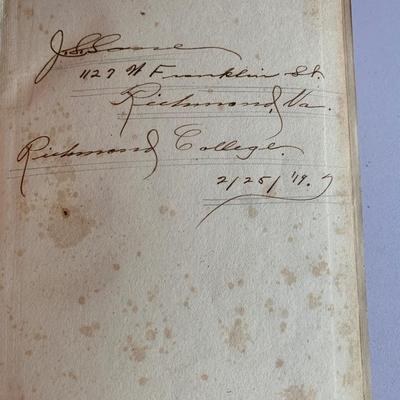 1127 W Franklin St.
Richmond, Va.
Richmond College.
2/25/'19.